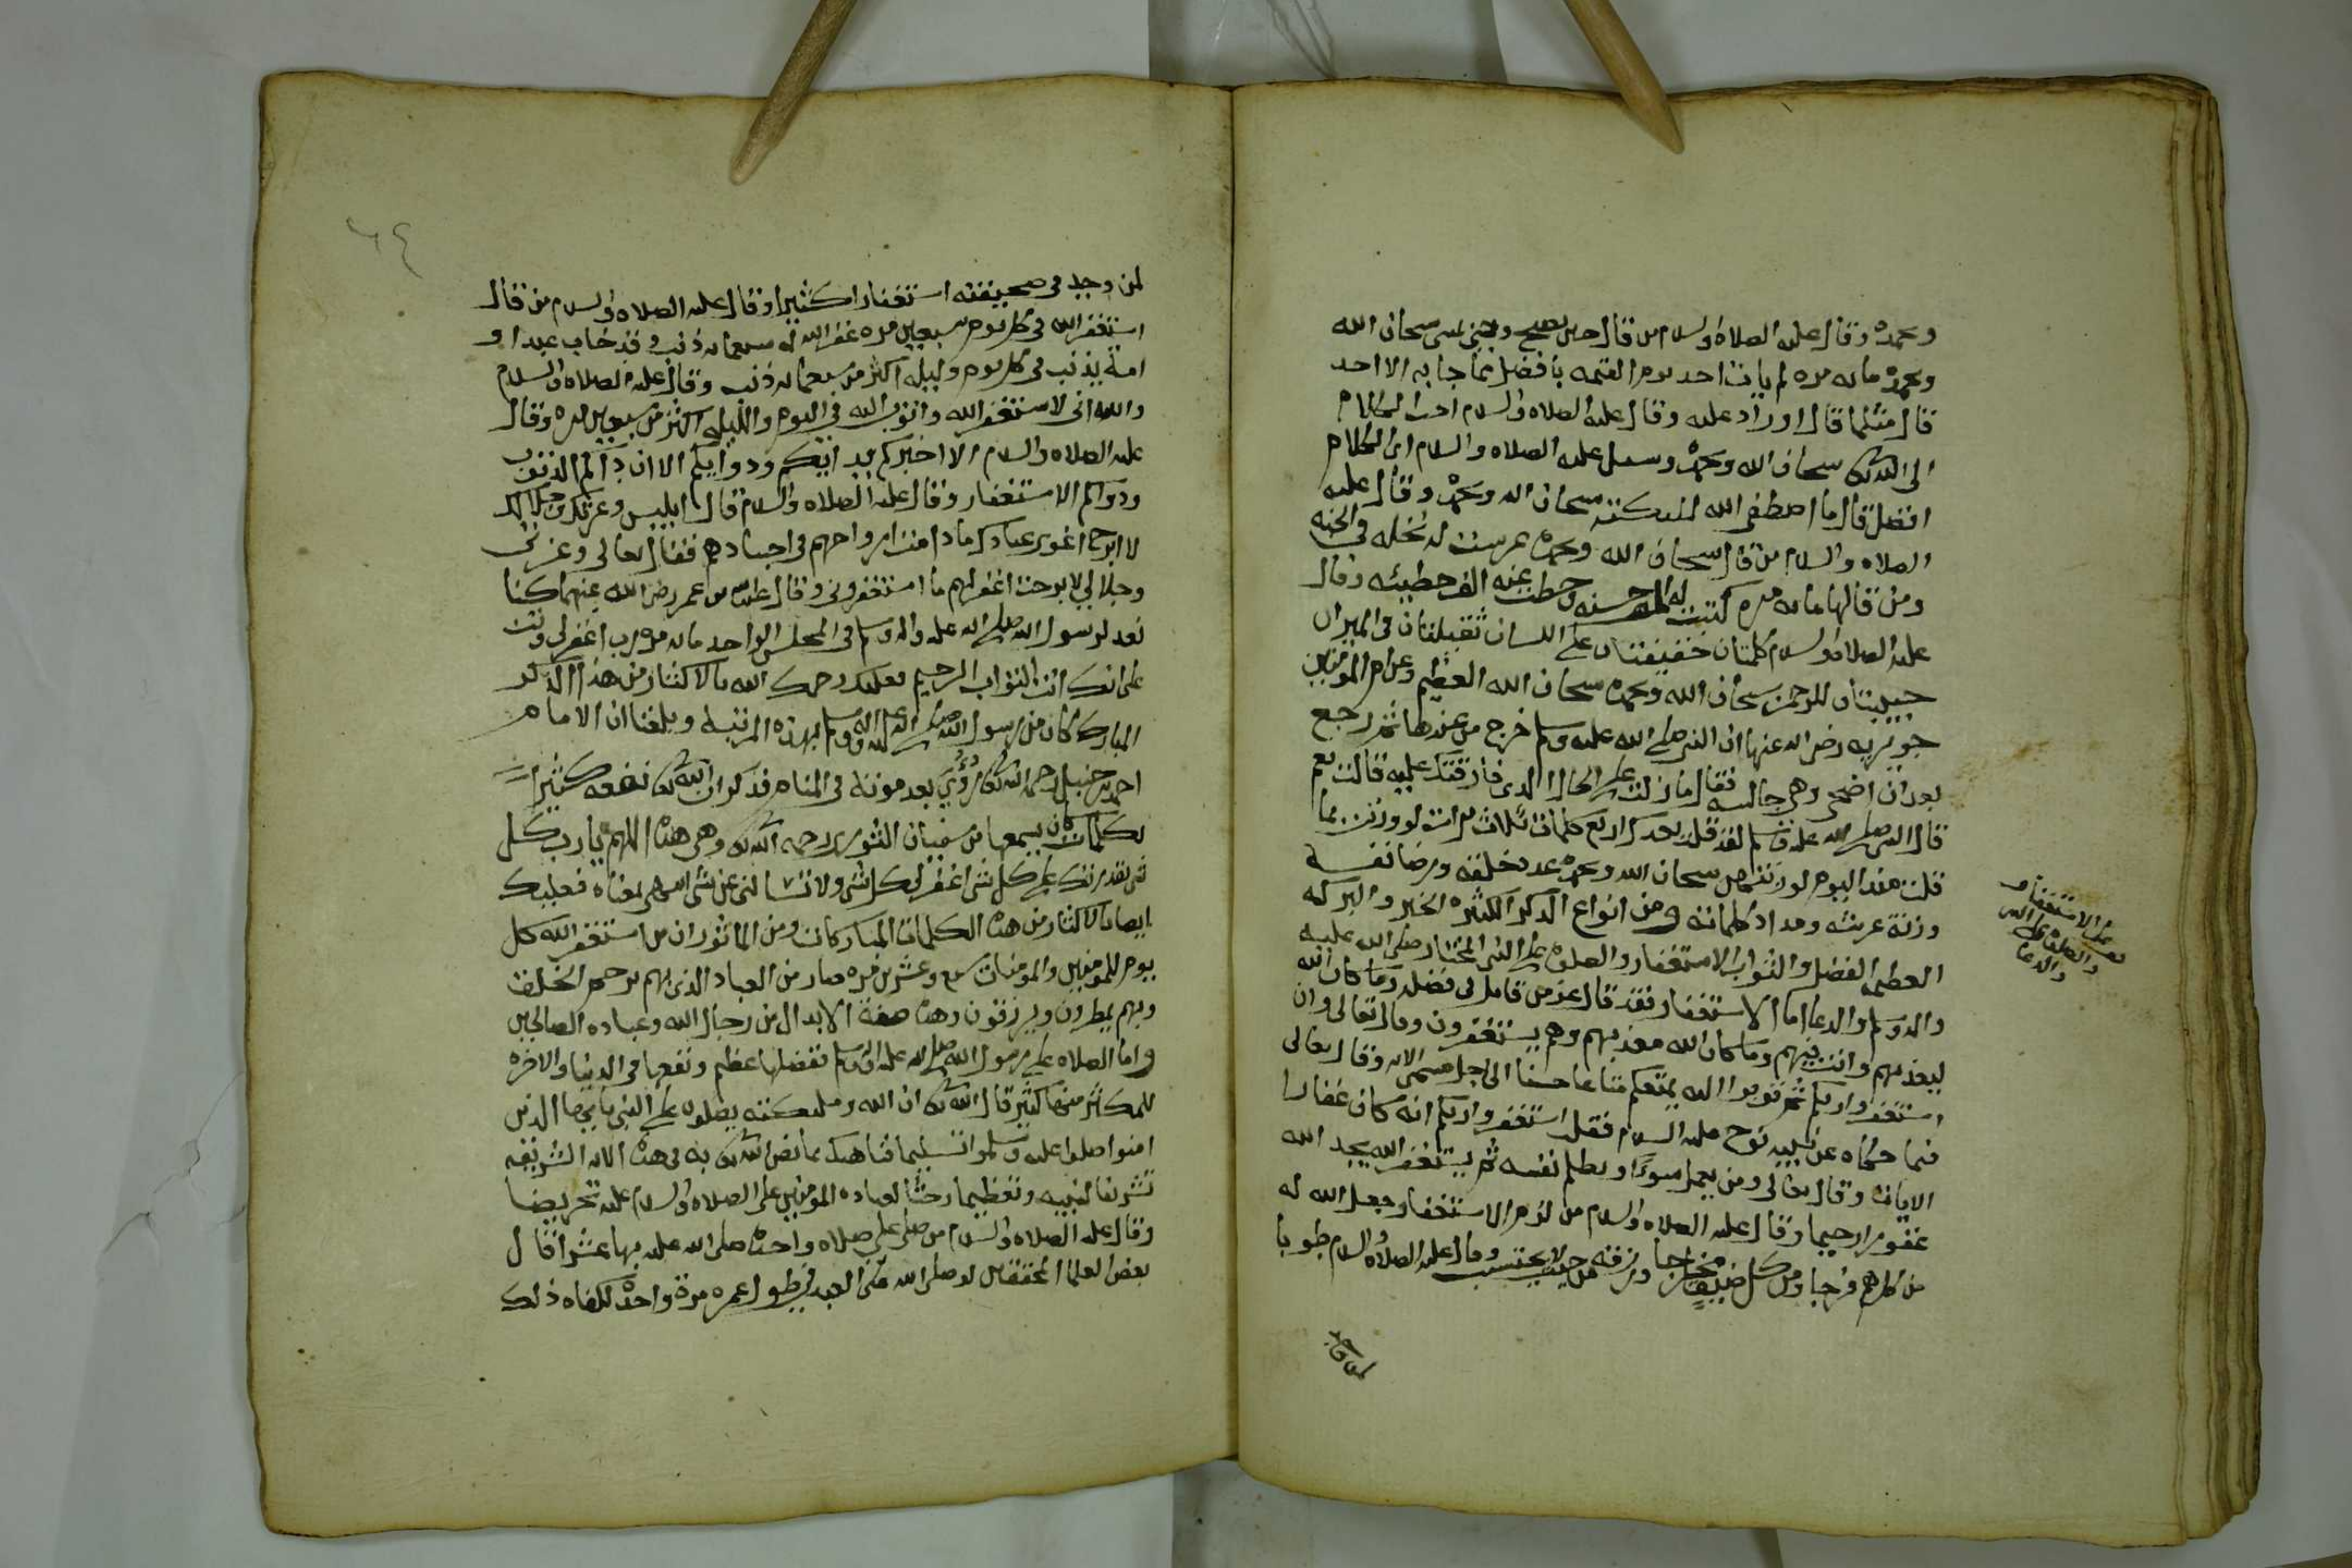 وبحمده وقال عليه الصلاه والسلام من قال حين يصبح وحين يمسى سبحان الله
وبحمده مائه مره لم يات احد يوم القيمه بافضل مما جا به الا احد
قال مثلما قال او زاد عليه وقال عليه الصلاه والسلام احب الكلام
الى الله تعالى سبحان الله وبحمده وسيل عليه الصلاه والسلام اى الكلام
افضل قال ما اصطفى الله لمليكته سبحان الله وبحمده وقال عليه
الصلاه والسلام من قال سبحان الله وبحمده غرست له نخله في الجنه
ومن قالها مائه مره كتبت له الف حسنه وحطت عنه الف خطيئه وقال
عليه الصلاه والسلام كلمتان خفيفتان على اللسان ثقيلتان في الميزان
حبيبتان للرحمن سبحان الله وبحمده سبحان الله العظيم وعن ام المومنين
جويريه رضى الله عنها ان النبى صلى الله عليه وسلم خرج من عندها ثم رجع
بعد ان اضحى وهى جالسه فقال ما زلت على الحال الذى فارقتك عليه قالت نعم
قال النبى صلى الله عليه وسلم لقد قلت بعدك اربع كلمات ثلاث مرات لو وزنت بما
قلت منذ اليوم لوزنتهن سبحان الله وبحمده عدد خلقه ورضا نفسه
وزنة عرشه ومداد كلماته ومن انواع الذكر الكثيره الخير والبركه
العظيمه الفضل والثواب الاستغفار والصلوه على النبى المختار صلى الله عليه
واله وسلم والدعا اما الاستغفار فقد قال عز من قايل في فضله وما كان الله
ليعذبهم وانت فيهم وما كان الله معذبهم وهم يستغفرون وقال تعالى وان
استغفروا ربكم ثم توبوا اليه يمتعكم متاعا حسنا الى اجل مسمى الايه وقال تعالى
فيما حكاه عن نبيه نوح عليه السلام فقلت استغفروا ربكم انه كان غفارا
الايات وقال تعالى ومن يعمل سوءا او يظلم نفسه ثم يستغفر الله يجد الله
غفورا رحيما وقال عليه الصلاه والسلام من لزم الاستغفار جعل الله له
من كل هم فرجا ومن كل ضيق مخرجا ورزقه من حيث لا يحتسب وقال عليه الصلاه والسلام طوبا
الاستغفار
والصلاه على النبى
والدعا
٦٤
لمن وجد في صحيفته استغفارا كثيرا وقال عليه الصلاه والسلام من قال
استغفر الله في كل يوم سبعين مره غفر الله له سبعمائه ذنب وقد خاب عبد او
امة يذنب في كل يوم وليله اكثر من سبعمائه ذنب وقال عليه الصلاه والسلام
والله انى لاستغفر الله واتوب اليه في اليوم والليله اكثر من سبعين مره وقال
عليه الصلاه والسلام الا اخبركم بدايكم ودوايكم الا ان داكم الذنوب
ودواكم الاستغفار وقال عليه الصلاه والسلام قال ابليس وعزتك وجلالك
لا ابرح اغوى عبادك ما دامت ارواحهم في اجسادهم فقال تعالى وعزتى
وجلالي لا برحت اغفر لهم ما استغفرونى وقال عبد الله بن عمر رضى الله عنهما كنا
نعد لرسول الله صلى الله عليه واله وسلم في المجلس الواحد مائه مره رب اغفر لى وتب
على انك انت التواب الرحيم فعليك رحمك الله بالاكثار من هذا الذكر
المبارك كان من رسول الله صلى الله عليه واله وسلم بهذه المرتبه وبلغنا ان الامام
احمد بن حنبل رحمه الله تعالى رؤى بعد موته في المنام فذكر ان الله تعالى نفعه كثيرا
بكلمات كان يسمعها من سفيان الثورى رحمه الله تعالى وهى هذه اللهم يا رب كل
شى بقدرتك على كل شى اغفر لى كل شى ولا تسالنى عن شى انتهى معناه فعليك
ايضا بالاكثار من هذه الكلمات المباركات ومن الماثور ان من استغفر الله كل
يوم للمومنين والمومنات سبع وعشرين مره صار من العباد الذى بهم يرحم الخلق
وبهم يمطرون ويرزقون وهذه صفة الابدال من رجال الله وعباده الصالحين
واما الصلاه على رسول الله صلى الله عليه واله وسلم ففضلها عظيم ونفعها في الدنيا والاخره
للمكثر منها كثير قال الله تعالى ان الله ومليكته يصلون على النبى يا ايها الذين
امنوا صلوا عليه وسلموا تسليما فناهيك بما نص الله تعالى به في هذه الايه الشريفه
تشريفا لنبيه وتعظيما وحثا لعباده المومنين على الصلاه والسلام عليه تحريضا
وقال عليه الصلاه والسلام من صلى على صلاه واحده صلى الله عليه بها عشرا قال
بعض العلما المحققين لو صلى الله على العبد في طول عمره مرة واحدة لكفاه ذلك